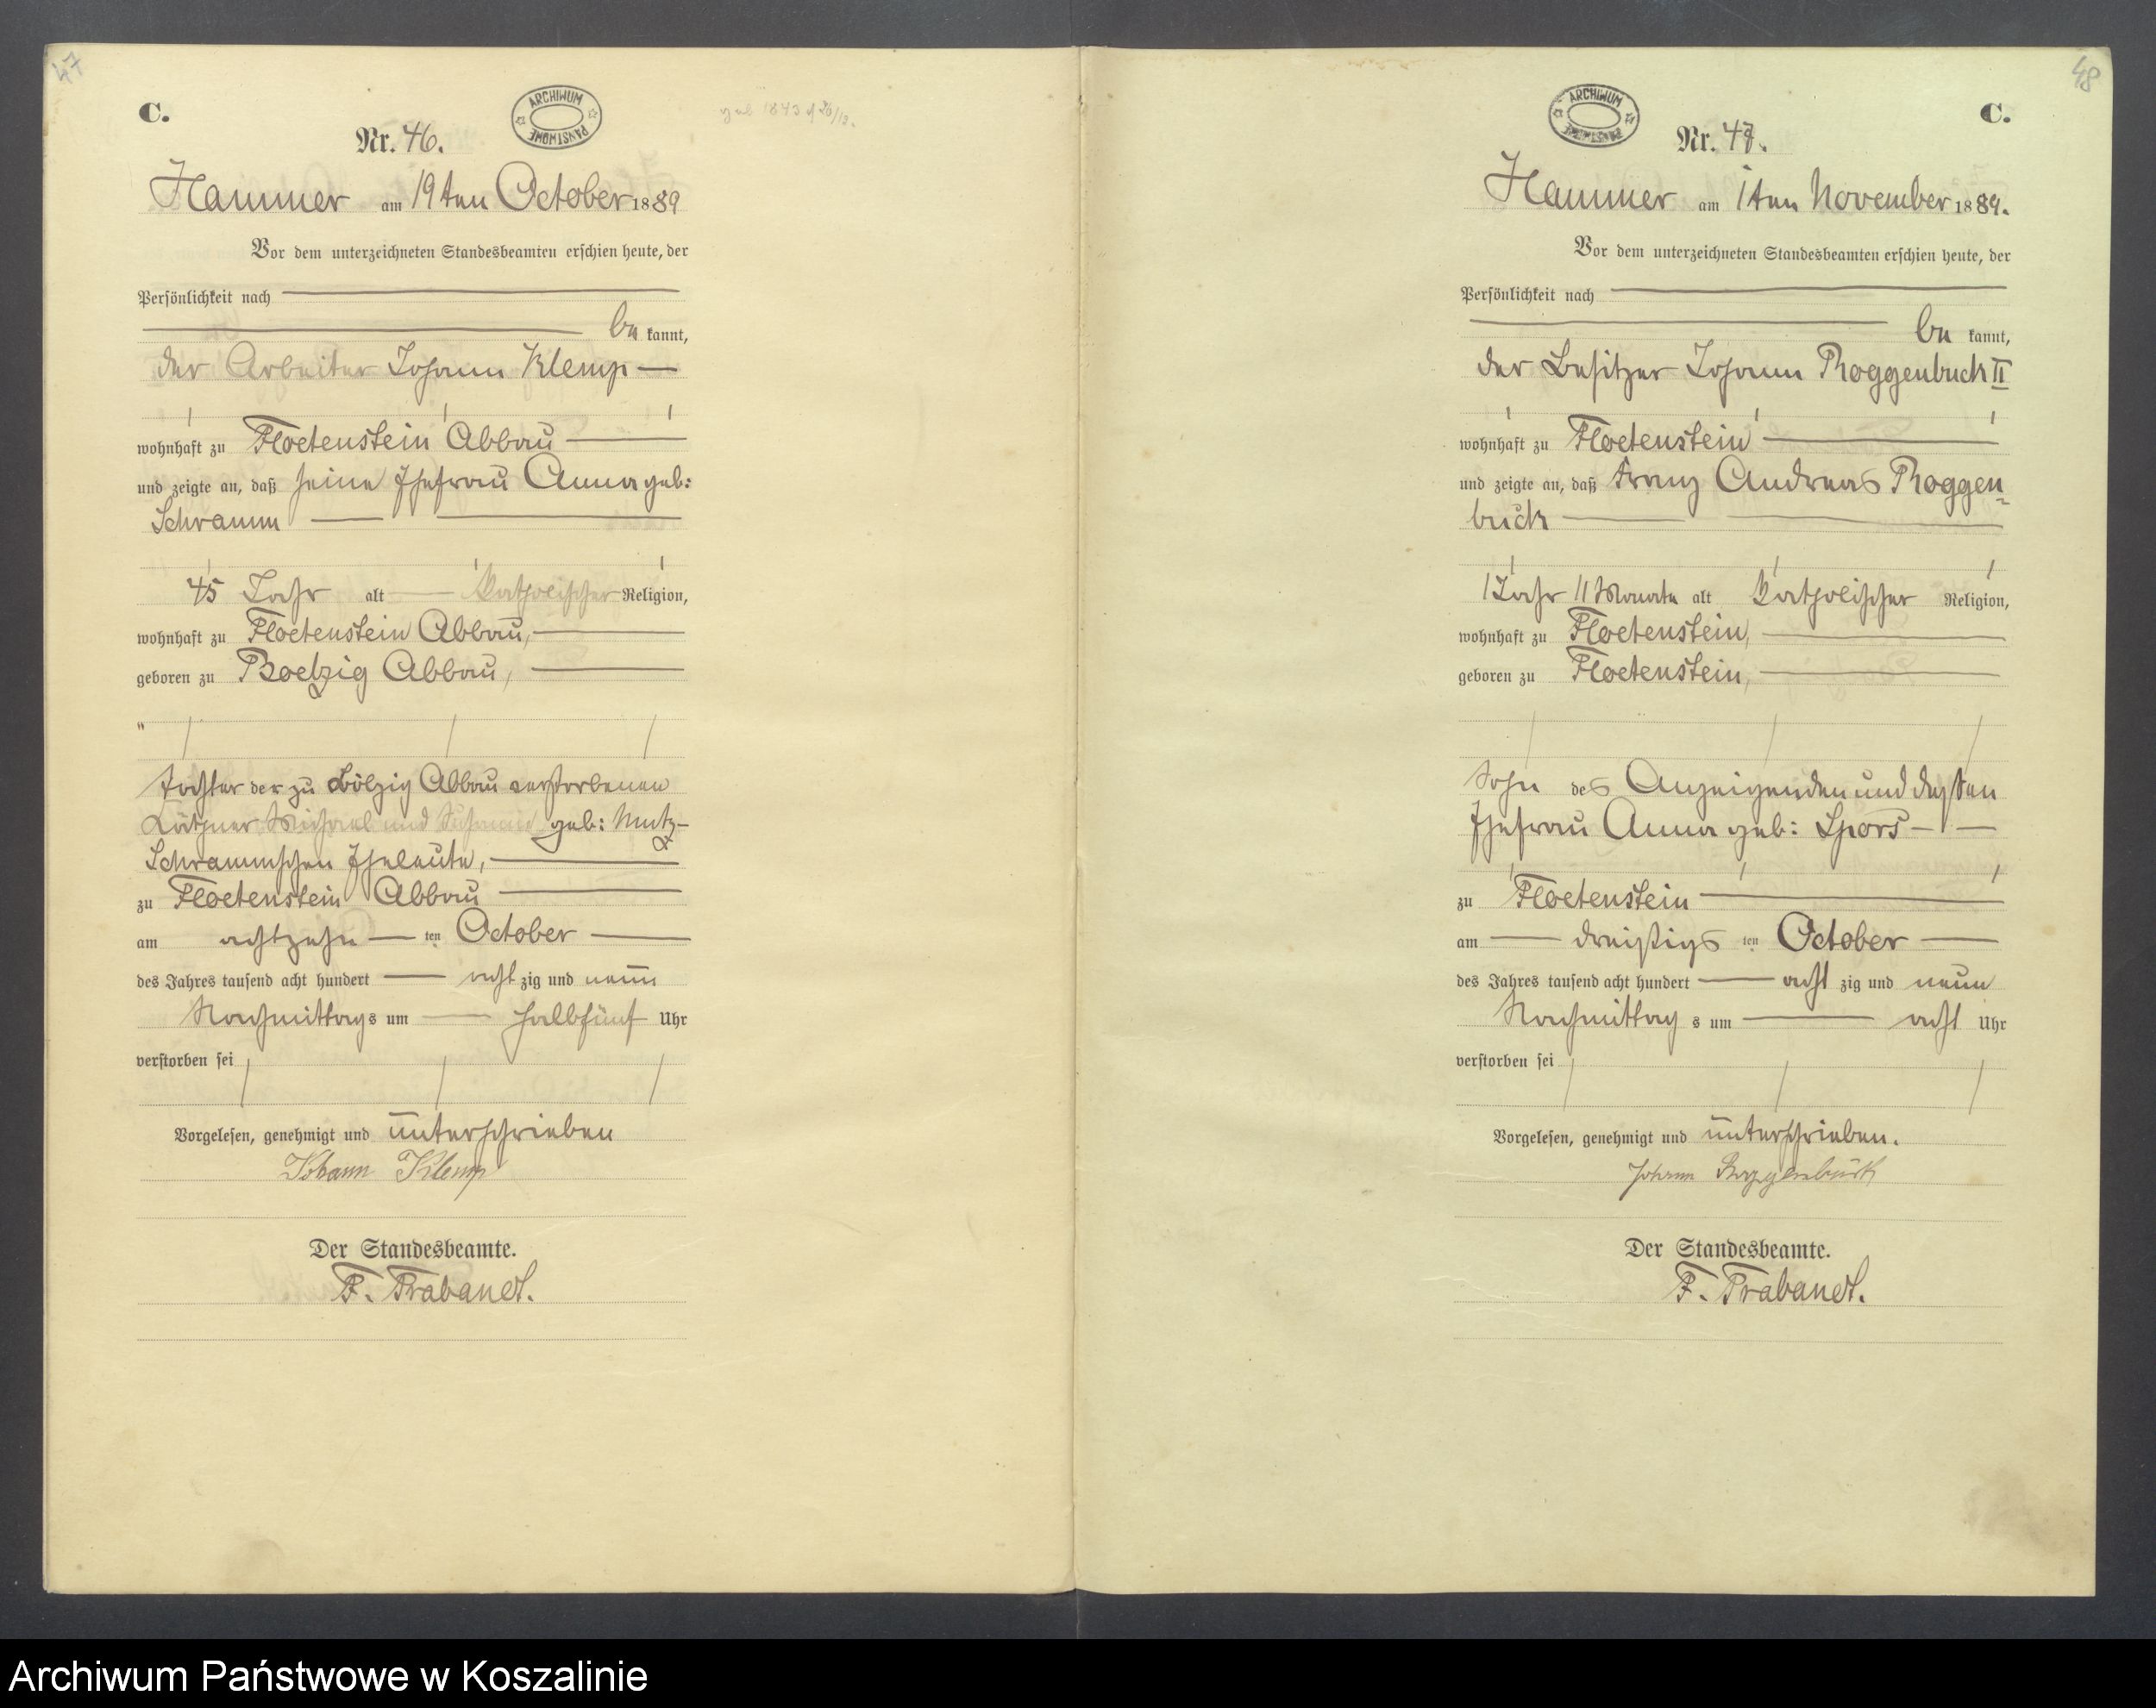 47
C.
ARCHIWUM
PAŃSTWOWE
Nr. 46.
Hammer am 19ten October 1889
Vor dem unterzeichneten Standesbeamten erschien heute, der
Persönlichkeit nach
be kannt,
der Arbeiter Johann Klemp
wohnhaft zu Floetenstein Abbau
und zeigte an, daß seine Ehefrau Anna geb:
Schramm
45 Jahr alt katholischer Religion,
wohnhaft zu Floetenstein Abbau,
geboren zu Boelzig Abbau,
"
Tochter der zu Bölzig Abbau verstorbenen
Käthner Michael und geb: Mutz-
Schrammschen Eheleute,
zu Floetenstein Abbau
am achtzehn ten October
des Jahres tausend acht hundert acht zig und neun
Nachmittags um halbfünf Uhr
verstorben sei
Vorgelesen, genehmigt und unterschrieben
Johann Klemp
Der Standesbeamte.
F. Trabandt.
48
C.
ARCHIWUM
PAŃSTWOWE
Nr. 47.
Hammer am 1ten November 1889.
Vor dem unterzeichneten Standesbeamten erschien heute, der
Persönlichkeit nach
be kannt,
der Besitzer Johann Roggenbuck II
wohnhaft zu Floetenstein
und zeigte an, daß Franz Andreas Roggen-
buck
1 Jahr 11 Monate alt katholischer Religion,
wohnhaft zu Floetenstein,
geboren zu Floetenstein,
Sohn des Anzeigenden und dessen
Ehefrau Anna geb: Spors
zu Floetenstein
am dreißigs ten October
des Jahres tausend acht hundert acht zig und neun
Nachmittag s um acht Uhr
verstorben sei
Vorgelesen, genehmigt und unterschrieben.
Johann Roggenbuck
Der Standesbeamte.
F. Trabandt.
Archiwum Państwowe w Koszalinie